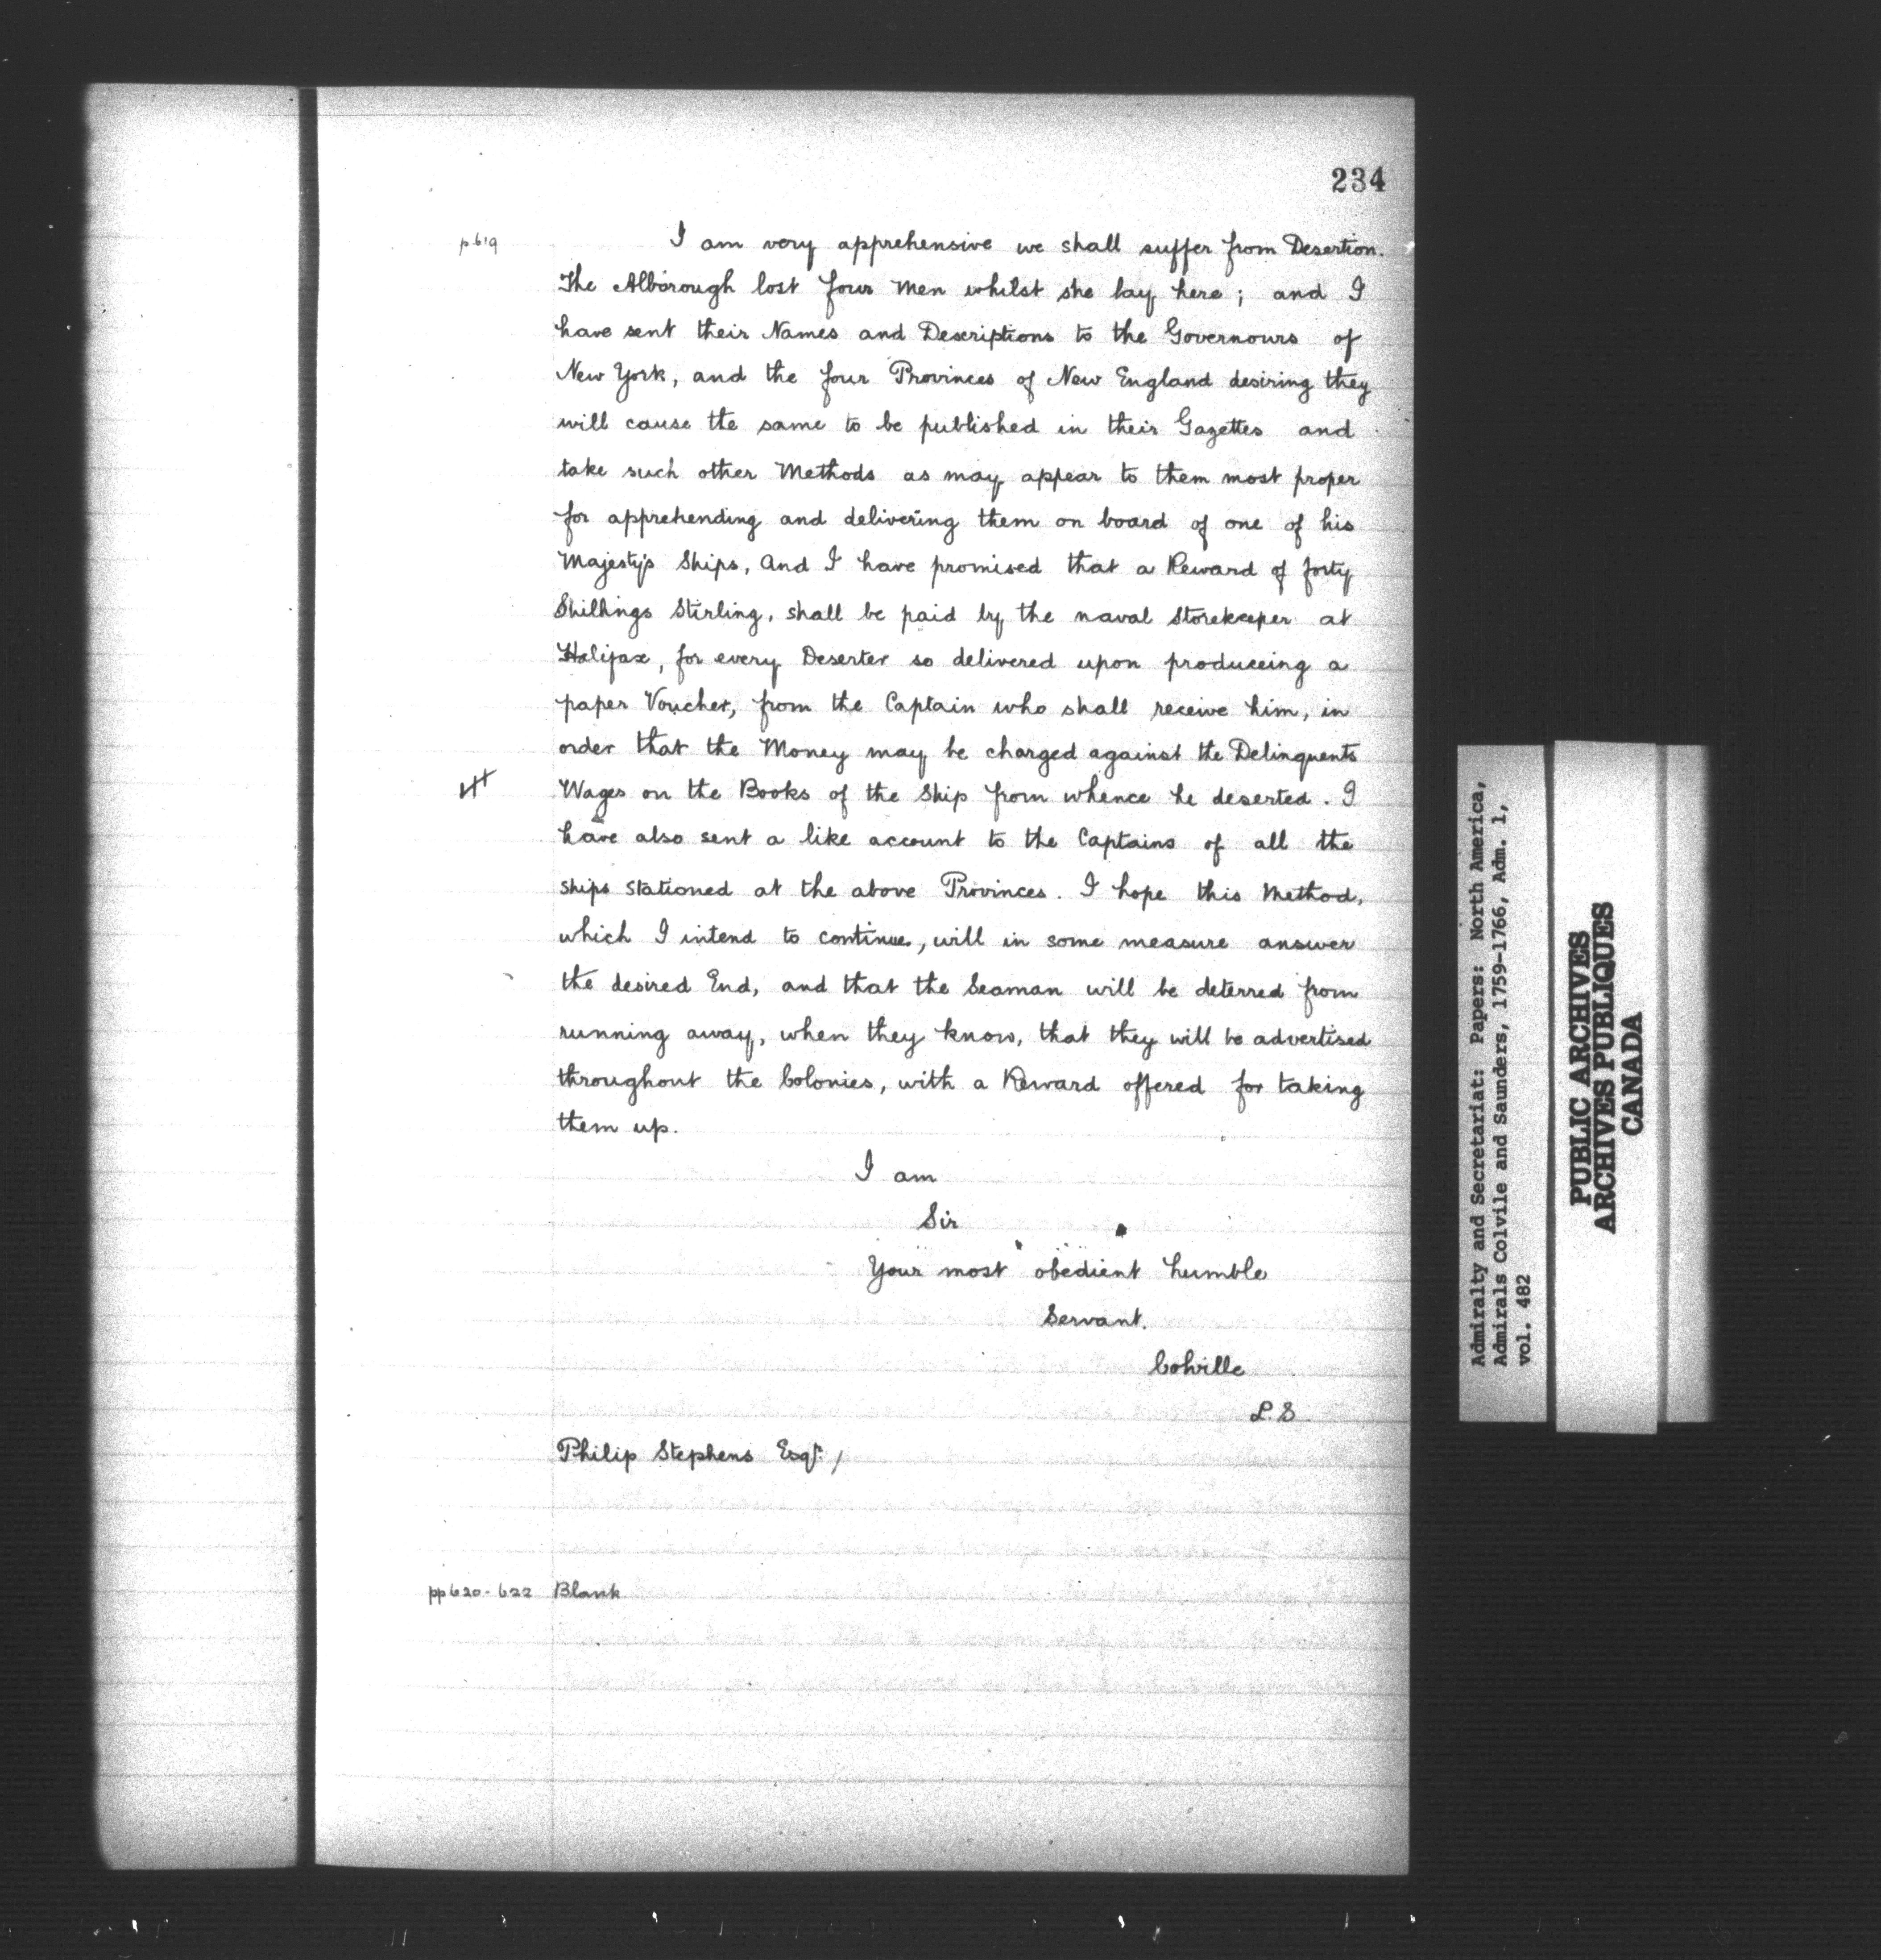 234
p 619
I am very apprehensive we shall suffer from Desertion.
The Alborough lost four Men whilst she lay here; and I
have sent their Names and Descriptions to the Governours of
New York, and the four Provinces of New England desiring they
will cause the same to be published in their Gazettes and
take such other Methods as may appear to them most proper
for apprehending and delivering them on board of one of his
Majesty's Ships, And I have promised that a Reward of forty
Shillings Stirling, shall be paid by the naval Storekeeper at
Halifax, for every Deserter so delivered upon produceing a
paper Voucher, from the Captain who shall receive him, in
order that the Money may be charged against the Delinquents
Wages on the Books of the Ship from whence he deserted. I
have also sent a like account to the Captains of all the
Ships Stationed at the above Provinces. I hope this Method,
which I intend to continue, will in some measure answer
the desired End, and that the Seaman will be deterred from
running away, when they know, that they will be advertised
throughout the Colonies, with a Reward offered for taking
them up.
I am
Sir
Your most obedient humble
Servant.
Colville
L.S
Philip Stephens Esqr. /
pp 620-622 Blank
Admiralty and Secretariat: Papers: North America,
Admirals Colvile and Saunders, 1759-1766, Adm. 1,
vol. 482
PUBLIC ARCHIVES
ARCHIVES PUBLIQUES
CANADA